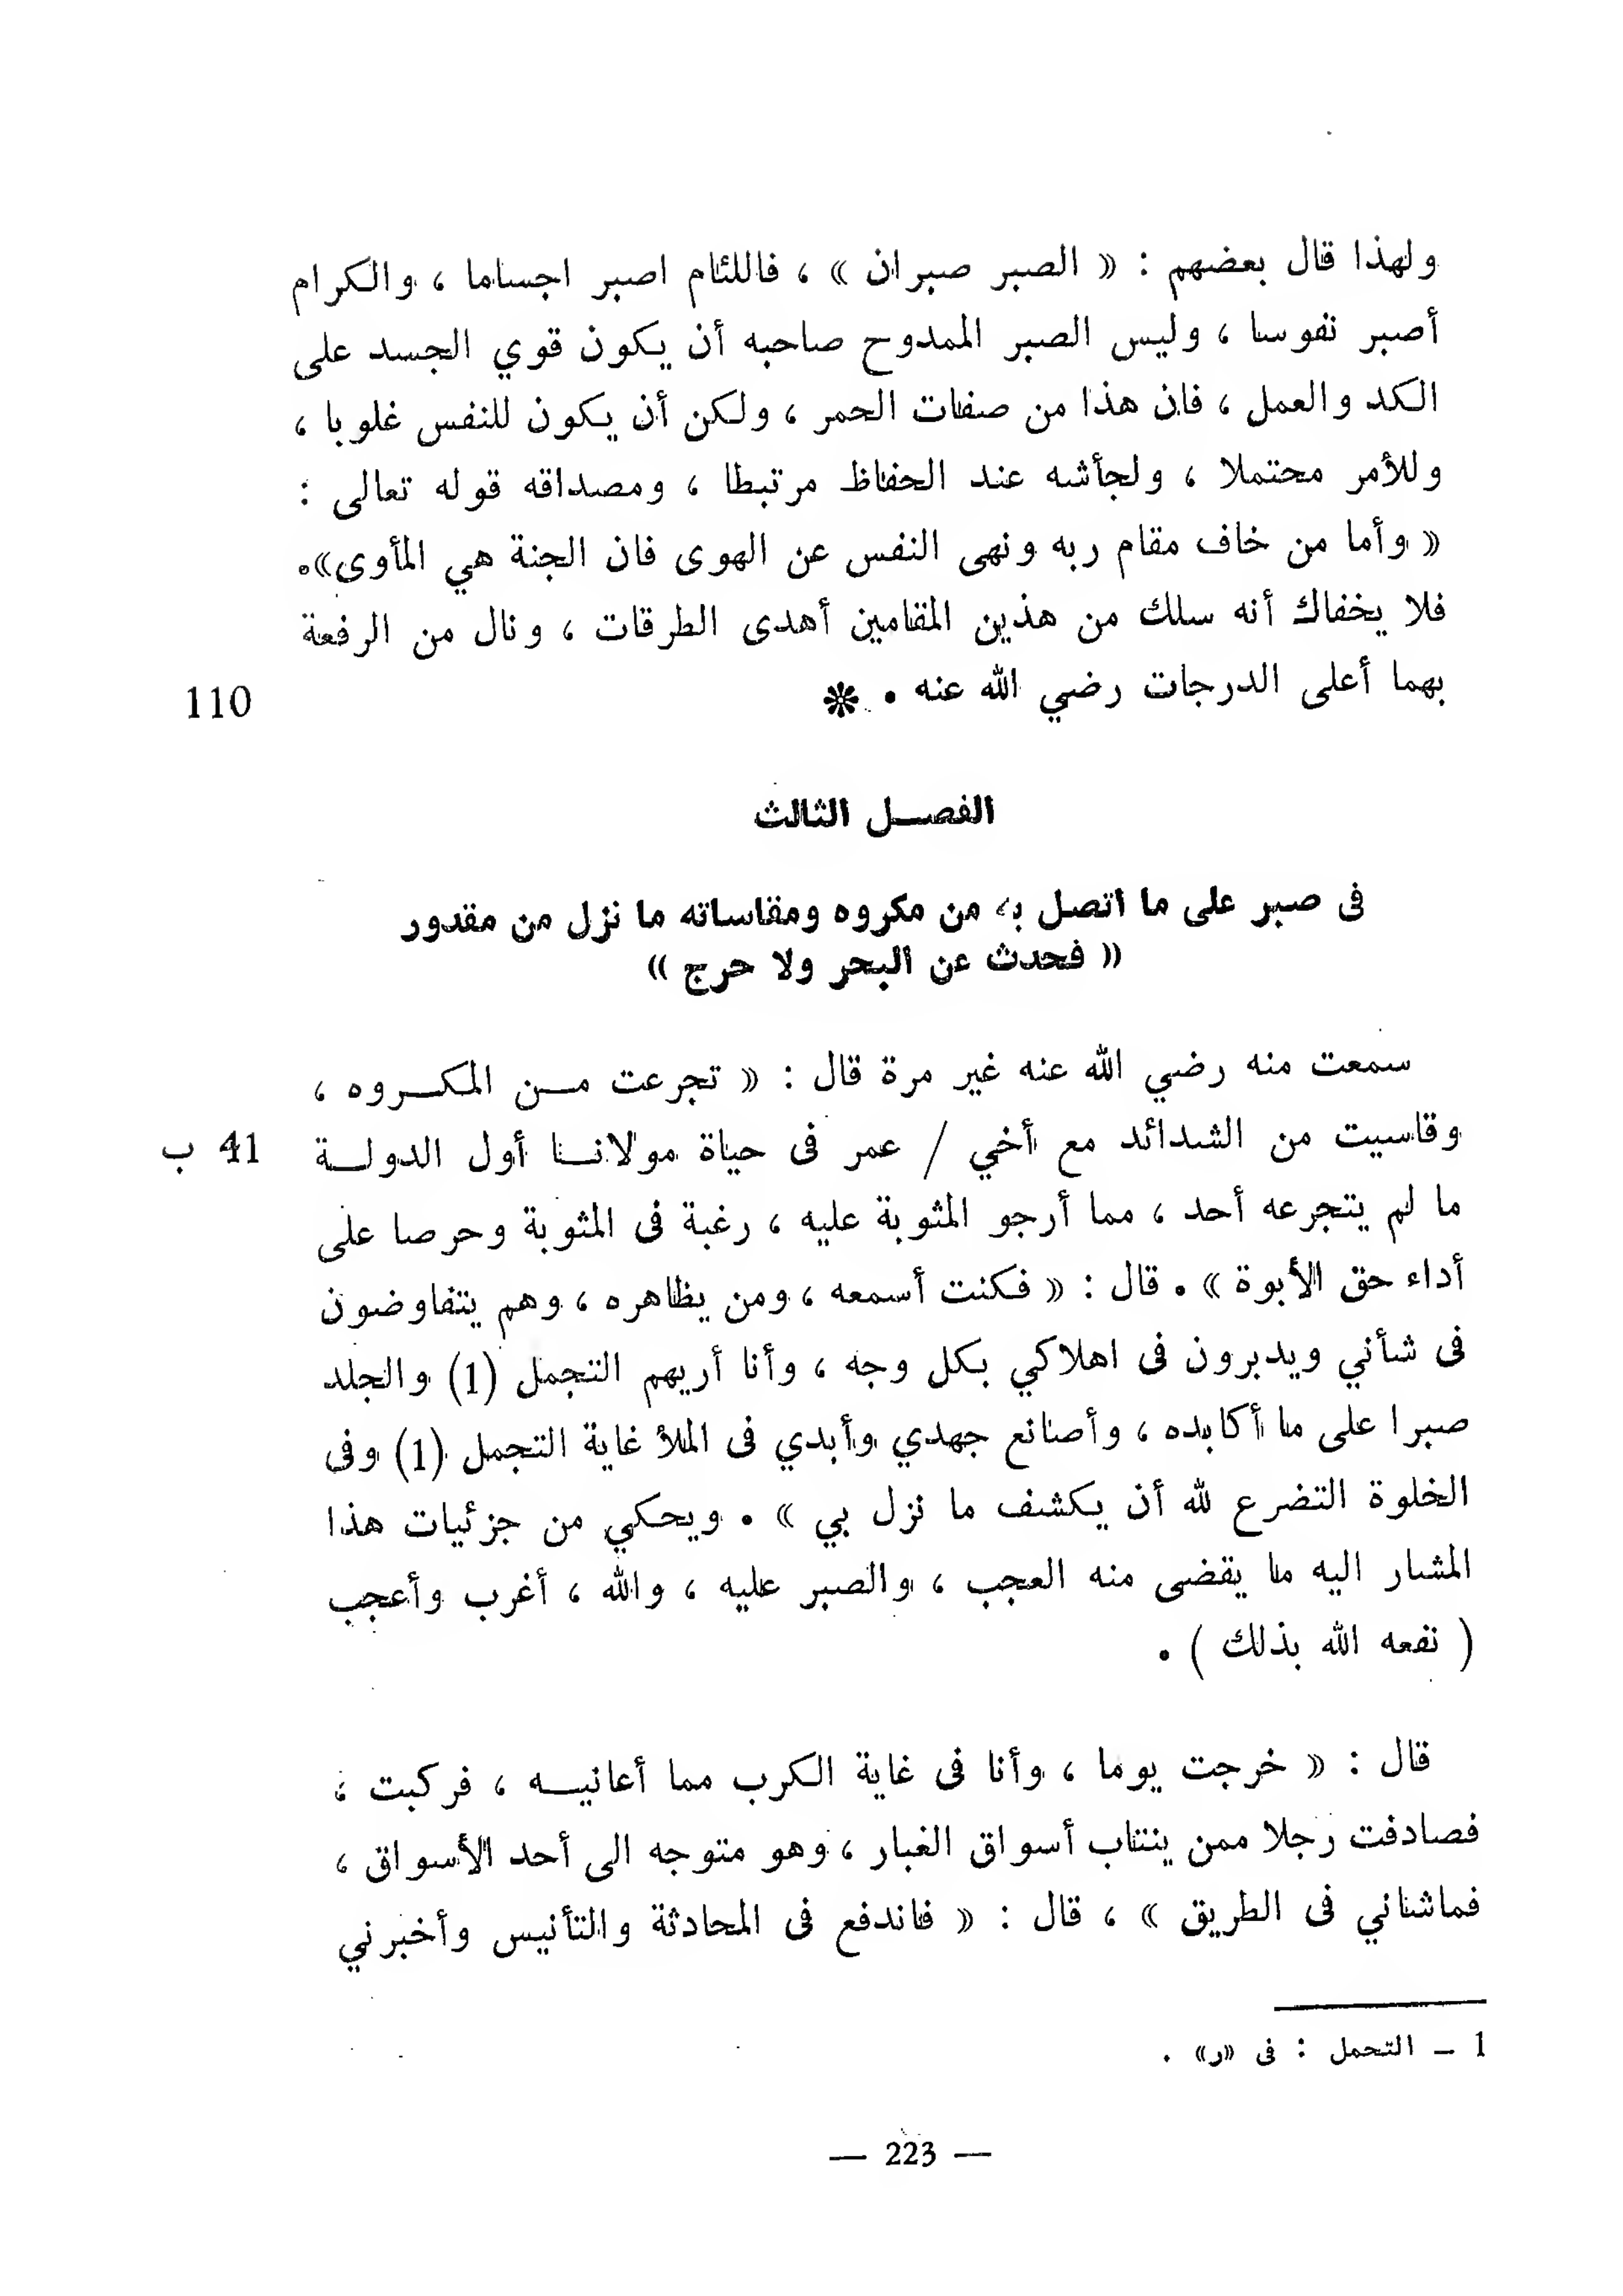 ولهذا قال بعضهم : « الصبر صبران » ، فاللئام اصبر اجساما ، والكرام
أصبر نفوسا ، وليس الصبر الممدوح صاحبه أن يكون قوي الجسد على
الكد والعمل ، فان هذا من صفات الحمر ، ولكن أن يكون للنفس غلوبا ،
وللأمر محتملا ، ولجأشه عند الحفاظ مرتبطا ، ومصداقه قوله تعالى :
« وأما من خاف مقام ربه ونهى النفس عن الهوى فان الجنة هي المأوى».
فلا يخفاك أنه سلك من هذين المقامين أهدى الطرقات ، ونال من الرفعة
بهما أعلى الدرجات رضي الله عنه . ❊ 110
الفصــل الثالث
فى صبر على ما اتصل به من مكروه ومقاساته ما نزل من مقدور
« فحدث عن البحر ولا حرج »
سمعت منه رضي الله عنه غير مرة قال : « تجرعت مــن المكــروه ،
وقاسيت من الشدائد مع أخي / عمر فى حياة مولانــا أول الدولــة 41 ب
ما لم يتجرعه أحد ، مما أرجو المثوبة عليه ، رغبة فى المثوبة وحرصا على
أداء حق الأبوة » . قال : « فكنت أسمعه ، ومن يظاهره ، وهم يتفاوضون
فى شأني ويدبرون فى اهلاكي بكل وجه ، وأنا أريهم التجمل (1) والجلد
صبرا على ما أكابده ، وأصانع جهدي وأبدي فى الملأ غاية التجمل (1) وفى
الخلوة التضرع لله أن يكشف ما نزل بي » . ويحكي من جزئيات هذا
المشار اليه ما يقضى منه العجب ، والصبر عليه ، والله ، أغرب وأعجب
( نفعه الله بذلك ) .
قال : « خرجت يوما ، وأنا فى غاية الكرب مما أعانيــه ، فركبت ،
فصادفت رجلا ممن ينتاب أسواق الغبار ، وهو متوجه الى أحد الأسواق ،
فماشاني فى الطريق » ، قال : « فاندفع فى المحادثة والتأنيس وأخبرني
1 – التحمل : فى «ر» .
— 223 —